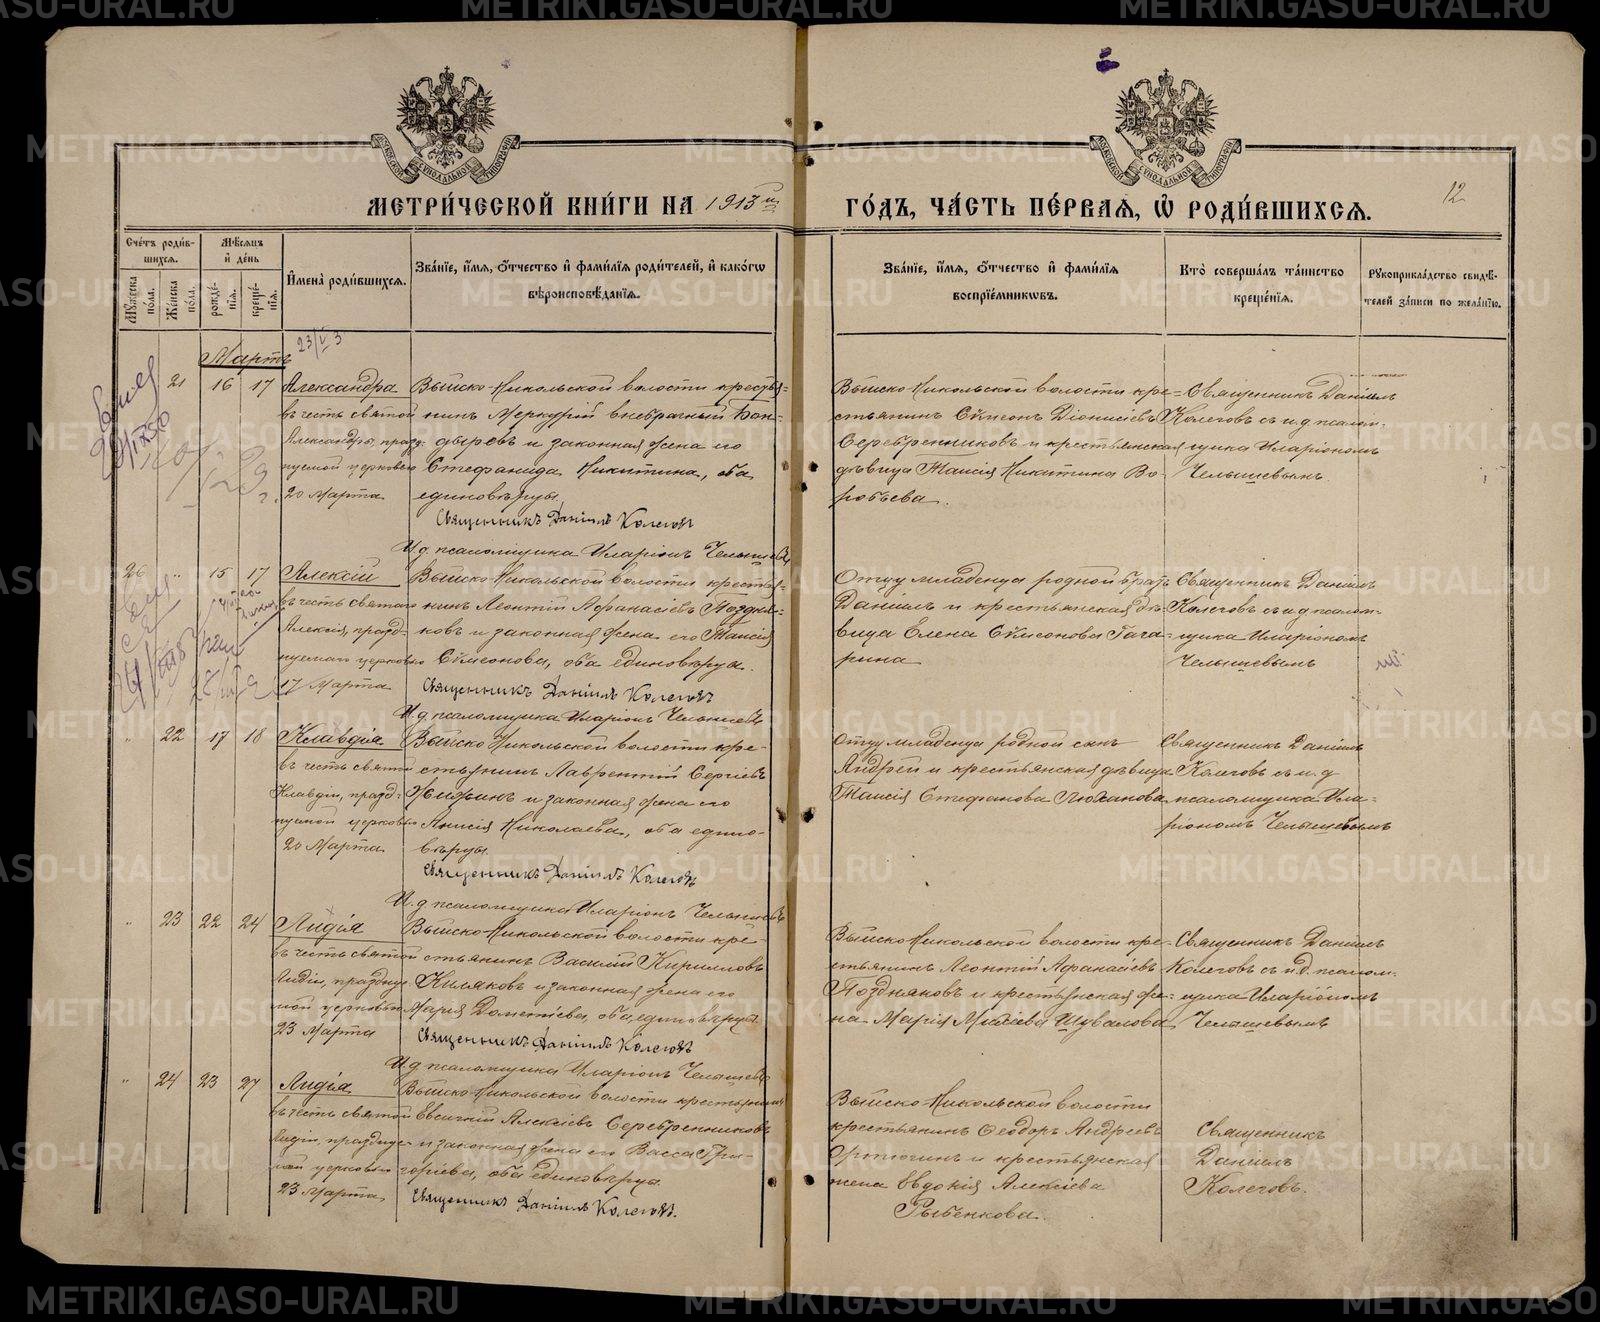 МЕТРИ́ЧЕСКОЙ КНИ́ГИ НА 1913й
ГО́ДЪ, ЧА́СТЬ ПЕ́РВАЯ, Ѡ҆ РОДИ́ВШИХСЯ.
12
Сче́тъ роди́вшихся.
Му́жеска по́ла.
Же́нска по́ла.
Мѣ́сяцъ и҆ де́нь
рожде́нїя.
креще́нїя.
И҆мена̀ роди́вшихся.
Зва́нїе, и҆́мя, ѻ҆́тчество и҆ фами́лїя роди́телей, и҆ како́гѡ
вѣроисповѣ́данїя.
Зва́нїе, и҆́мя, ѻ҆́тчество и҆ фами́лїя
воспрїе́мниковъ.
Кто̀ соверша́лъ та́инство
креще́нїя.
Рукоприкла́дство свидѣ́-
телей за́писи по жела́нїю.
Мартъ
23/V 3
21 16 17
Александра
въ честь святой
Александры, празд-
нуемой церковью
20 Марта
Выйско-Никольской волости крестья-
нинъ Меркурій внебрачный Бон-
дыревъ и законная жена его
Стефанида Никитина, оба
единовѣрцы.
Священникъ Даніилъ Колеговъ
И.д. псаломщика Иларіонъ Челышевъ
Выйско-Никольской волости кре-
стьянинъ Сѵмеонъ Діонисіевъ
Серебренниковъ и крестьянская
дѣвица Таисія Никитина Во-
робьева.
Священникъ Даніилъ
Колеговъ съ и.д. псалом-
щика Иларіономъ
Челышевымъ.
26 " 15 17
Алексій
въ честь святаго
Алексія, празд-
нуемаго церковью
17 Марта
Выйско-Никольской волости крестья-
нинъ Леонтій Афанасіевъ Поздня-
ковъ и законная жена его Таисія
Сѵмеонова, оба единовѣрцы.
Священникъ Даніилъ Колеговъ
И.д. псаломщика Иларіонъ Челышевъ
Отцу младенца родной братъ
Даніилъ и крестьянская дѣ-
вица Елена Сѵмеонова Гага-
рина
Священникъ Даніилъ
Колеговъ съ и.д. псалом-
щика Иларіономъ
Челышевымъ
" 22 17 18
Клавдія
въ честь святой
Клавдіи, празд-
нуемой церковью
20 Марта
Выйско-Никольской волости кре-
стьянинъ Лаврентій Сергіевъ
и законная жена его
Анисія Николаева, оба едино-
вѣрцы.
Священникъ Даніилъ Колеговъ
И.д. псаломщика Иларіонъ Челышевъ
Отцу младенца родной сынъ
Андрей и крестьянская дѣвица
Таисія Стефанова Плюханова
Священникъ Даніилъ
Колеговъ съ и.д.
псаломщика Ила-
ріономъ Челышевымъ
" 23 22 24
Лидія
въ честь святой
Лидіи, праздну-
мой церковью
23 Марта
Выйско-Никольской волости кре-
стьянинъ Василій Кирилловъ
Киляковъ и законная жена его
Марія Дометіева, оба единовѣрцы.
Священникъ Даніилъ Колеговъ
И.д. псаломщика Иларіонъ Челышевъ
Выйско-Никольской волости кре-
стьянинъ Леонтій Афанасіевъ
Поздняковъ и крестьянская же-
на Марія Моисіева Шувалова
Священникъ Даніилъ
Колеговъ съ и.д. псалом-
щика Иларіономъ
Челышевымъ
" 24 23 27
Лидія
въ честь святой
Лидіи, праздуе-
мой церковью
23 Марта
Выйско-Никольской волости крестьянинъ
Евсигній Алексіевъ Серебренниковъ
и законная жена его Васса Гри-
горіева, оба единовѣрцы.
Священникъ Даніилъ Колеговъ.
Выйско-Никольской волости
крестьянинъ Ѳеодоръ Андреевъ
Ортюгинъ и крестьянская
жена Евдокія Алексіева
Рыбенкова.
Священникъ
Даніилъ
Колеговъ.
METRIKI.GASO-URAL.RU